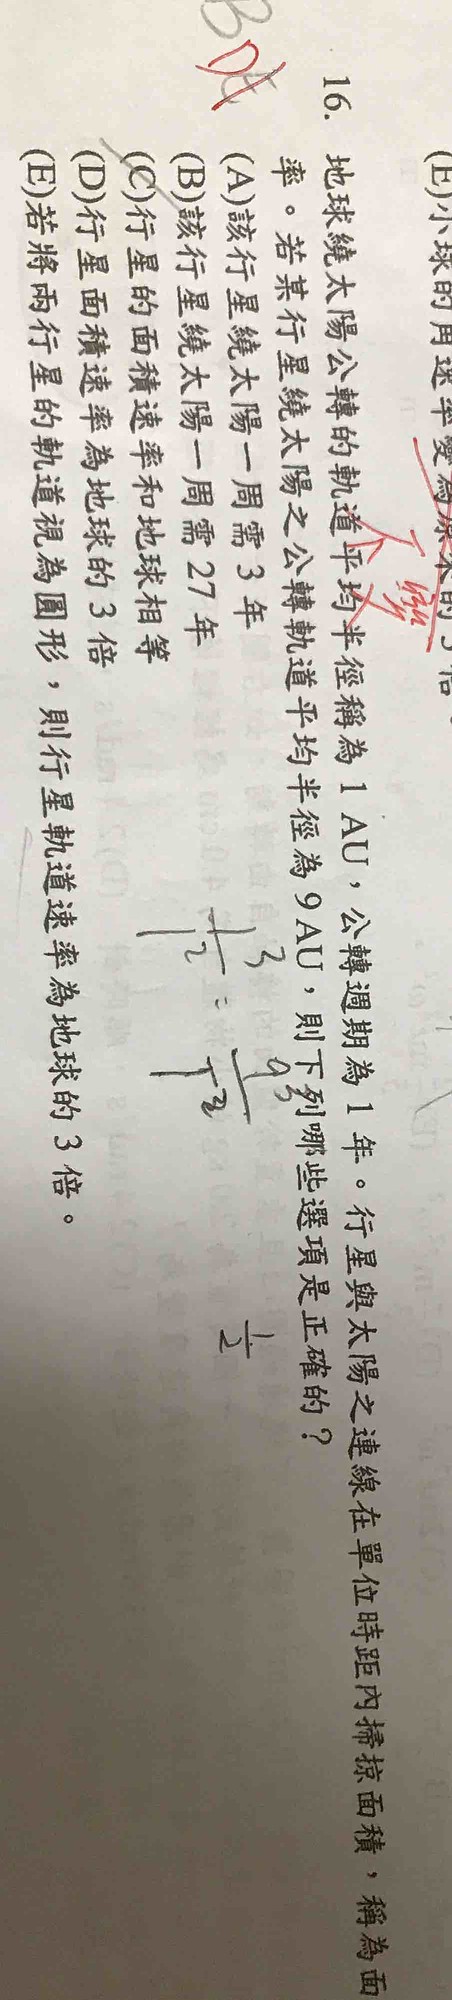 (E)小球的角速率變為原來的3倍
16. 地球繞太陽公轉的軌道平均半徑稱為 1 AU，公轉週期為 1 年。行星與太陽之連線在單位時距內掃掠面積，稱為面
率。若某行星繞太陽之公轉軌道平均半徑為 9 AU，則下列哪些選項是正確的？
(A)該行星繞太陽一周需 3 年
(B)該行星繞太陽一周需 27 年
(C)行星的面積速率和地球相等
(D)行星面積速率為地球的 3 倍
(E)若將兩行星的軌道視為圓形，則行星軌道速率為地球的 3 倍。